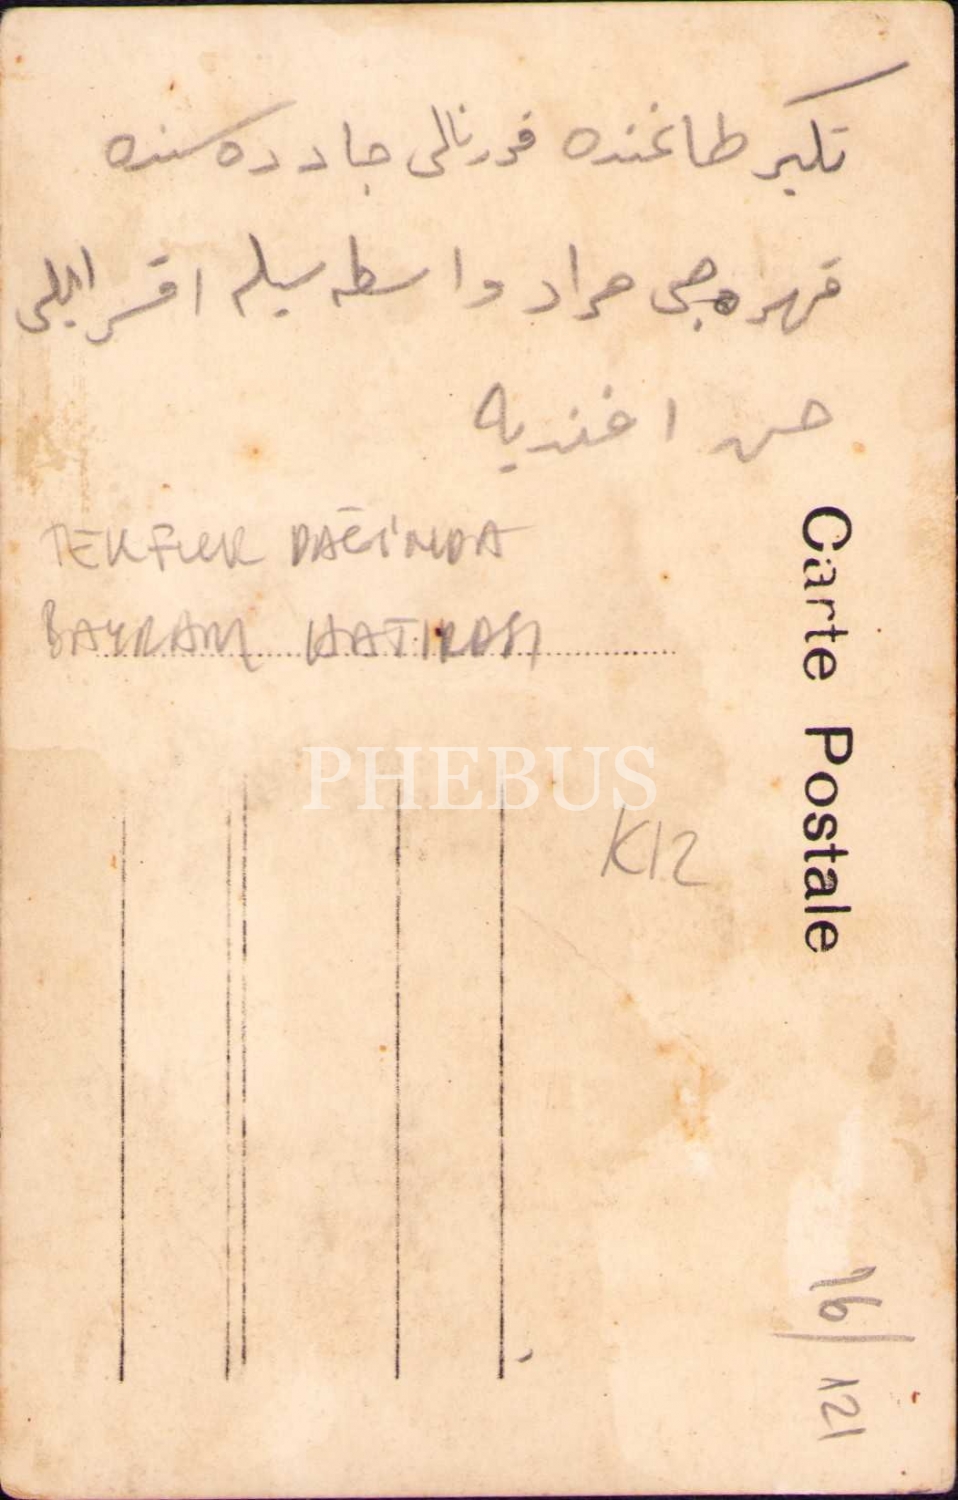 تكير طاغنده قورنالى جادده سنده
قهوه جى مراد واسطه سيله
حسن افندى يه
TEKFUR DAĞINDA
BAYRAM HATIRASI
Carte Postale
PHEBUS
K12
16/121